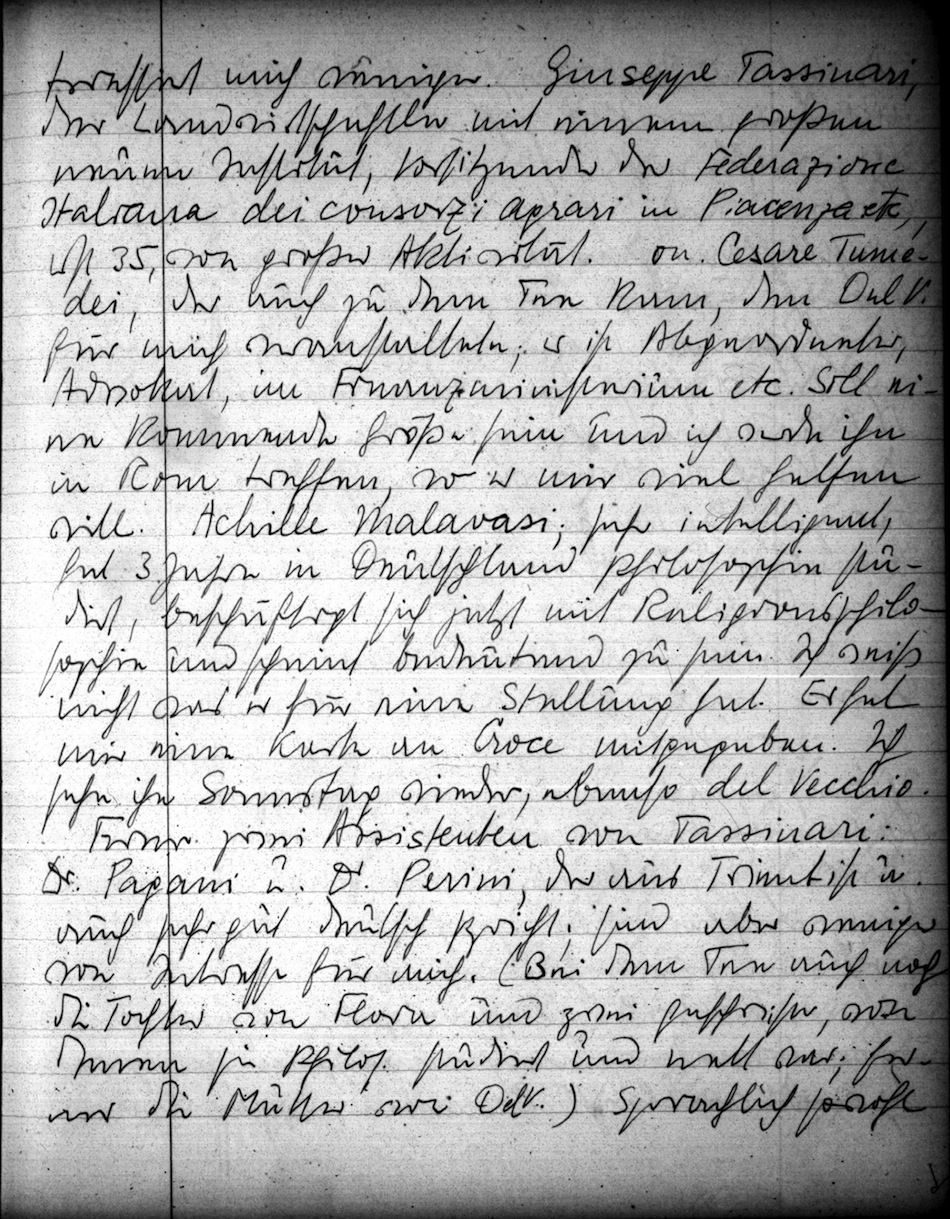 interessiert mich weniger. Giuseppe Tassinari,
der Landwirtschaftler mit einem großen
neuen Institut, Vorsitzender der Federazione
Italiana dei consorzi agrari in Piacenza etc,
ist 35, von großer Aktivität. on. Cesare Tume-
dei, der auch zu dem Tee kam, den Del V.
für mich veranstaltete; er ist Abgeordneter,
Advokat, im Finanzministerium etc. Soll ei-
ne kommende Größe sein und ich werde ihn
in Rom treffen, wo er mir viel helfen
will. Achille Malavasi; sehr intelligent,
hat 3 Jahre in Deutschland Philosophie stu-
diert, beschäftigt sich jetzt mit Religionsphilo-
sophie und scheint bedeutend zu sein. Ich weiß
nicht was er für eine Stellung hat. Er hat
mir eine Karte an Croce mitgegeben. Ich
sehe ihn Sonnstag wieder, ebenso del Vecchio.
Ferner zwei Assistenten von Tassinari:
Dr. Pagani u. Dr. Perini, der aus Trient ist u.
auch sehr gut deutsch spricht; sind aber weniger
von Interesse für mich. (Bei dem Tee auch noch
die Tochter von Flora und zwei Geschwister, von
denen sie Philos. studiert und nett war; fer-
ner die Mutter von DelV.) Sprachlich sowohl